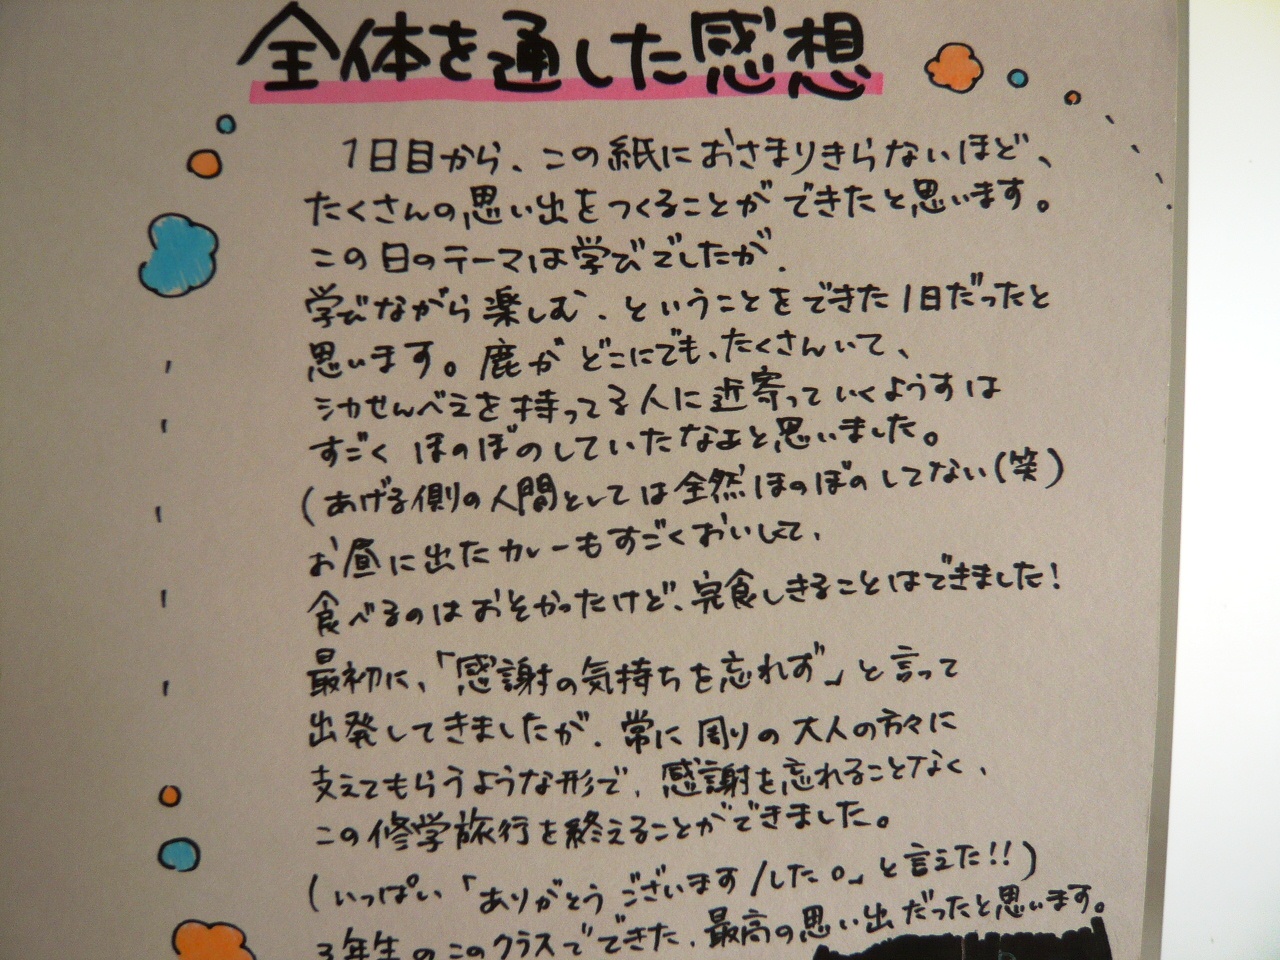 全体を通した感想
1日目から、この紙におさまりきらないほど、
たくさんの思い出をつくることができたと思います。
この日のテーマは学びでしたが、
学びながら楽しむ、ということをできた1日だったと
思います。鹿がどこにでも、たくさんいて、
シカせんべえを持ってる人に近寄っていくようすは
すごくほのぼのしていたなぁと思いました。
(あげる側の人間としては全然ほのぼのしてない(笑)
お昼に出たカレーもすごくおいしくて、
食べるのはおそかったけど、完食しきることはできました!
最初に、「感謝の気持ちを忘れず」と言って
出発してきましたが、常に周りの大人の方々に
支えてもらうような形で、感謝を忘れることなく、
この修学旅行を終えることができました。
(いっぱい「ありがとうございます/した。」と言えた!!)
3年生のこのクラスでできた、最高の思い出だったと思います。